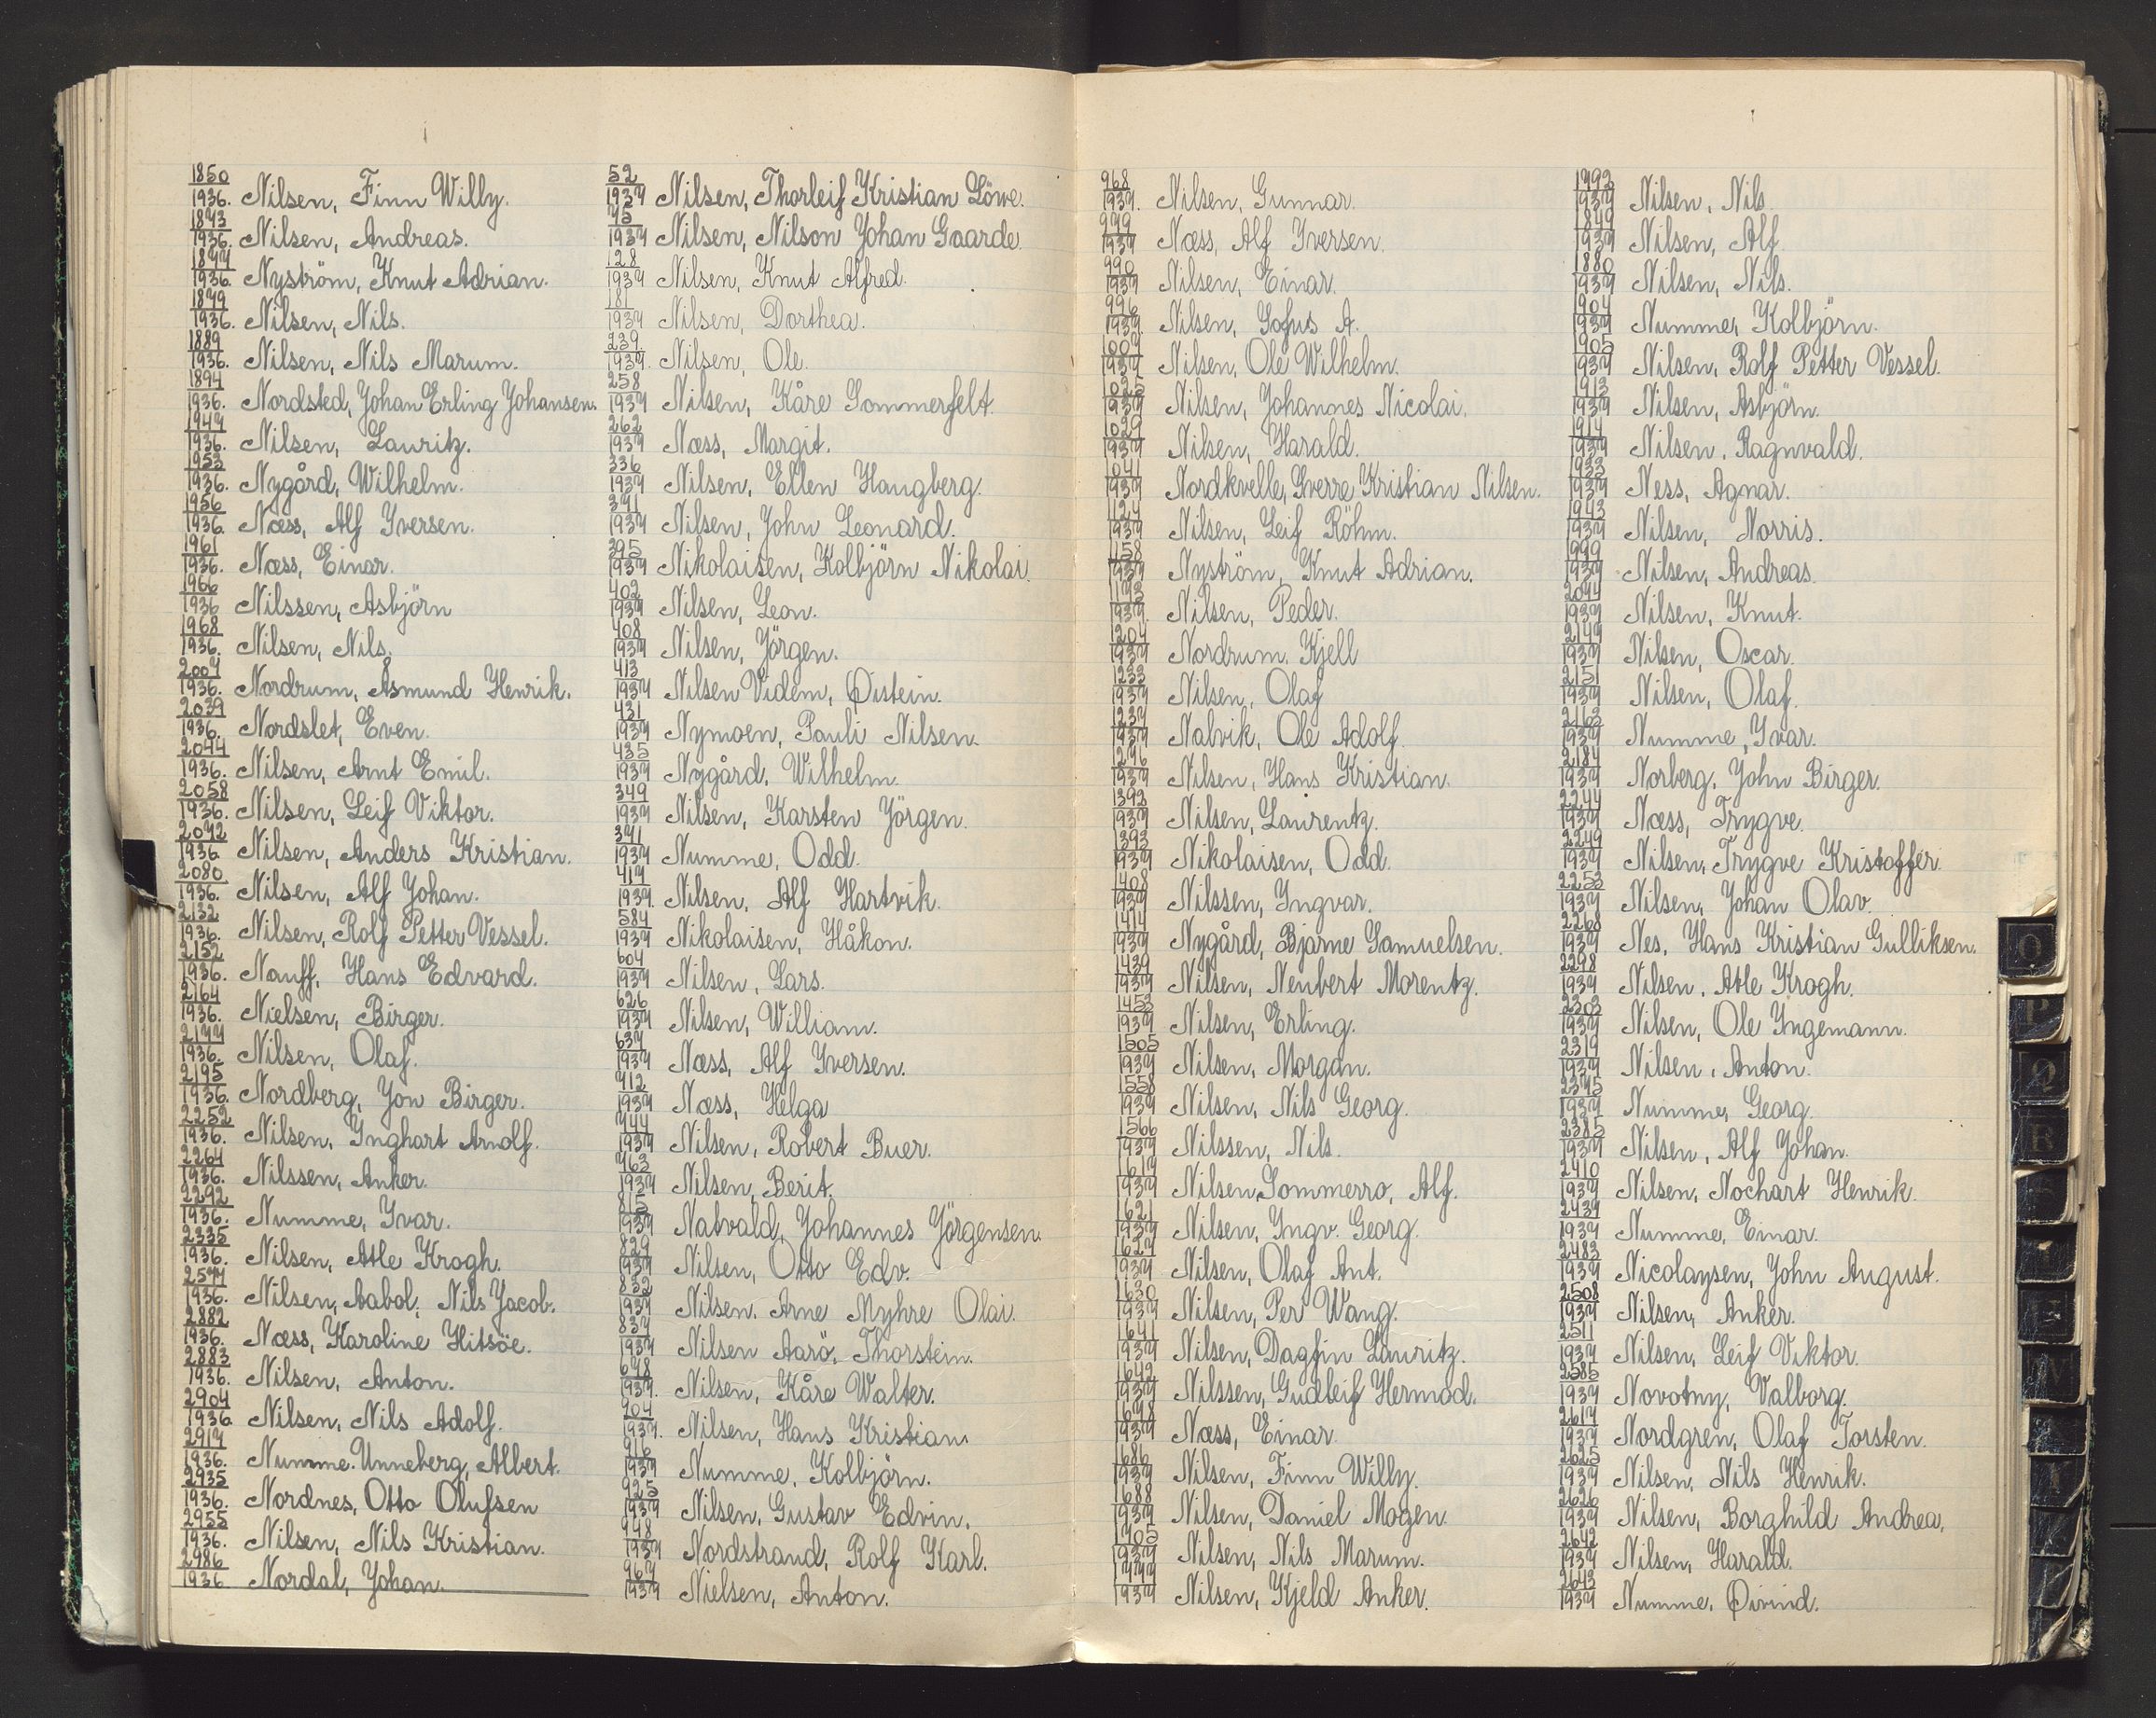 1850/1936. Nilsen, Finn Willy.
1873/1936. Nilsen, Andreas.
1877/1936. Nyström, Knut Adrian.
1879/1936. Nilsen, Nils.
1889/1936. Nilsen, Nils Marum.
1894/1936. Nordsted, Johan Erling Johansen.
1947/1936. Nilsen, Lauritz.
1953/1936. Nygård, Wilhelm.
1956/1936. Næss, Alf Iversen.
1961/1936. Næss, Einar.
1966/1936 Nilssen, Asbjörn
1968/1936. Nilsen, Nils.
2007/1936. Nordrum, Asmund Henrik.
2039/1936. Nordslet, Even.
2044/1936. Nilsen, Arnt Emil.
2058/1936. Nilsen, Leif Viktor.
2072/1936 Nilsen, Anders Kristian.
2080/1936. Nilsen, Alf Johan.
2132/1936. Nilsen, Rolf Petter Vessel.
2152/1936. Nauff, Hans Edvard.
2164/1936. Nielsen, Birger.
2177/1936. Nilsen, Olaf.
2195/1936. Nordberg, Jon Birger.
2252/1936. Nilsen, Inghart Arnolf.
2264/1936. Nilssen, Anker.
2292/1936. Numme, Ivar.
2335/1936. Nilsen, Atle Krogh.
2577/1936. Nilsen, Aabol, Nils Jacob.
2882/1936. Næss, Karoline Hitsöe.
2883/1936. Nilsen, Anton.
2904/1936 Nilsen, Nils Adolf.
2917/1936. Numme. Unneberg, Albert.
2935/1936. Nordnes, Otto Olufsen
2955/1936. Nilsen, Nils Kristian.
2986/1936 Nordal, Johan.
52/1937 Nilsen, Thorleif Kristian Löwe.
75/1937 Nilsen, Nilson Johan Gaarde.
128/1937 Nilsen, Knut Alfred.
181/1937 Nilsen, Dorthea.
239/1937. Nilsen, Ole.
258/1937 Nilsen, Kåre Sommerfelt.
262/1937 Næss, Margit.
336/1937 Nilsen, Ellen Haugberg.
391/1937 Nilsen, John Leonard.
395/1937 Nikolaisen, Kolbjörn Nikolai.
402/1937 Nilsen, Leon.
408/1937 Nilsen, Jörgen.
413/1937 Nilsen Videm, Øistein.
431/1937 Nymoen, Pauli Nilsen.
435/1937 Nygård, Wilhelm.
349/1937 Nilsen, Karsten Jörgen.
371/1937 Numme, Odd.
417/1937. Nilsen, Alf Hartvik.
584/1937 Nikolaisen, Håkon.
604/1937 Nilsen, Lars.
626/1937 Nilsen, William.
637/1937 Næss, Alf Iversen.
712/1937 Næss, Helga
744/1937 Nilsen, Robert Buer.
763/1937 Nilsen, Berit.
815/1937 Natvald, Johannes Jörgensen.
829/1937 Nilsen, Otto Edv.
832/1937 Nilsen. Arne Myhre Olai.
837/1937 Nilsen Aarö, Thorstein.
678/1937. Nilsen, Kåre Walter.
904/1937. Nilsen, Hans Kristian.
916/1937 Numme, Kolbjörn.
925/1937 Nilsen, Gustav Edvin.
948/1937 Nordstrand, Rolf Karl.
967/1937 Nielsen, Anton.
968/1937. Nilsen, Gunnar.
979/1937 Næss, Alf Iversen.
990/1937 Nilsen, Einar.
996/1937 Nilsen, Sofus A.
1007/1937 Nilsen, Ole Wilhelm.
1025/1937 Nilsen, Johannes Nicolai.
1029/1937 Nilsen, Harald.
1041/1937 Nordkvelle, Sverre Kristian Nilsen.
1124/1937 Nilsen, Leif Röhm.
1158/1937 Nyström, Knut Adrian.
1173/1937 Nilsen, Peder.
1204/1937 Nordrum. Kjell
1233/1937 Nilsen, Olaf
1237/1937 Nalvik, Ole Adolf.
1296/1937 Nilsen, Hans Kristian.
1392/1937 Nilsen, Laurentz.
1393/1937 Nikolaisen, Odd.
1408/1937 Nilssen, Ingvar.
1414/1937 Nygård, Bjarne Samuelsen.
1439/1937 Nilsen, Neubert Morentz.
1453/1937 Nilsen, Erling.
1505/1937 Nilsen, Morgan.
1558/1937 Nilsen, Nils Georg.
1566/1937 Nilssen, Nils.
1617/1937 Nilsen, Sommerro, Alf.
1621/1937 Nilsen, Ingv. Georg.
1627/1937 Nilsen, Olaf Ant.
1630/1937 Nilsen, Per Wang.
1641/1937 Nilsen, Dagfin Lauritz.
1642/1937 Nilssen, Gudleif Hermod.
1678/1937 Næss, Einar.
1686/1937 Nilsen, Finn Willy.
1688/1937 Nilsen, Daniel Mogen
1705/1937 Nilsen, Nils Marum.
1777/1937 Nilsen, Kjeld Anker.
1793/1937 Nilsen, Nils.
1849/1937 Nilsen, Alf
1880/1937 Nilsen, Nils.
1904/1937 Numme, Kolbjörn.
1905/1937 Nilsen, Rolf Petter Vessel.
1913/1937 Nilsen, Asbjörn.
1914/1937 Nilsen, Ragnvald.
1933/1937 Ness, Agnar.
1943/1937 Nilsen, Norris.
1999/1937 Nilsen, Andreas.
2074/1937 Nilsen, Knut.
2147/1937 Nilsen, Oscar.
2151/1937 Nilsen, Olaf.
2163/1937 Numme, Ivar.
2184/1937 Norberg, John Birger.
2244/1937 Næss, Trygve.
2249/1937 Nilsen, Trygve Kristoffer.
2253/1937 Nilsen, Johan Olav.
2268/1937 Nes, Hans Kristian Gulliksen.
2298/1937 Nilsen, Atle Krogh.
2303/1937 Nilsen, Ole Ingemann.
2319/1937 Nilsen, Anton.
2375/1937 Numme, Georg.
2385/1937 Nilsen, Alf Johan.
2410/1937 Nilsen, Nochart Henrik.
2439/1937 Numme, Einar.
2483/1937 Nicolaysen, John August.
2508/1937 Nilsen, Anker.
2511/1937 Nilsen, Leif Viktor.
2585/1937 Novotny, Valborg.
2617/1937 Nordgren, Olaf Torsten.
2625/1937 Nilsen, Nils Henrik.
2626/1937 Nilsen, Borghild Andrea.
2642/1937 Nilsen, Harald.
2643/1937 Numme, Øivind.
O
P
Q
R